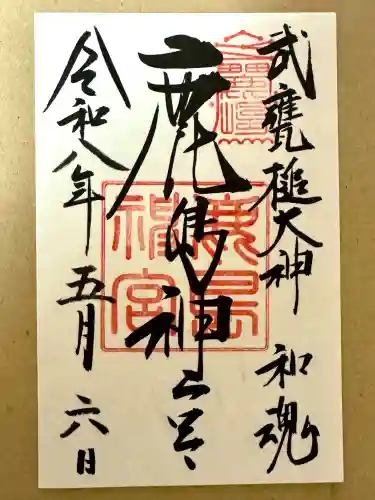 武甕槌大神 和魂
鹿島神宮
令和八年五月六日
鹿島
神宮